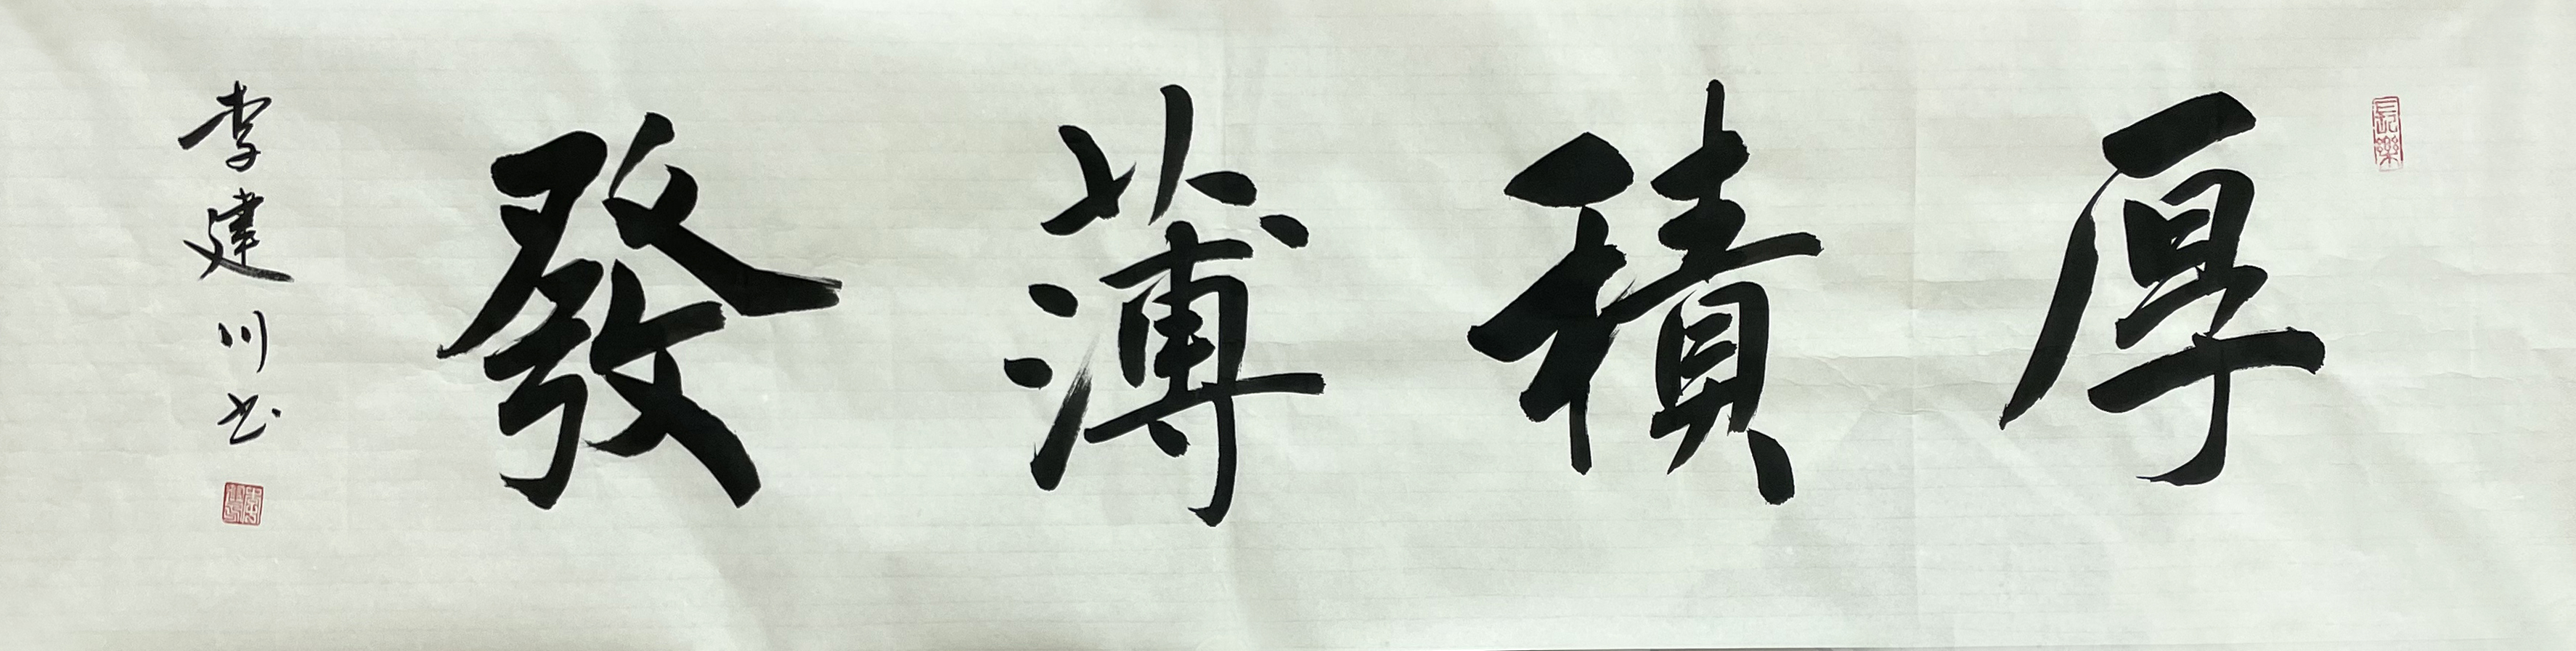 厚積薄發
李建川书
長樂